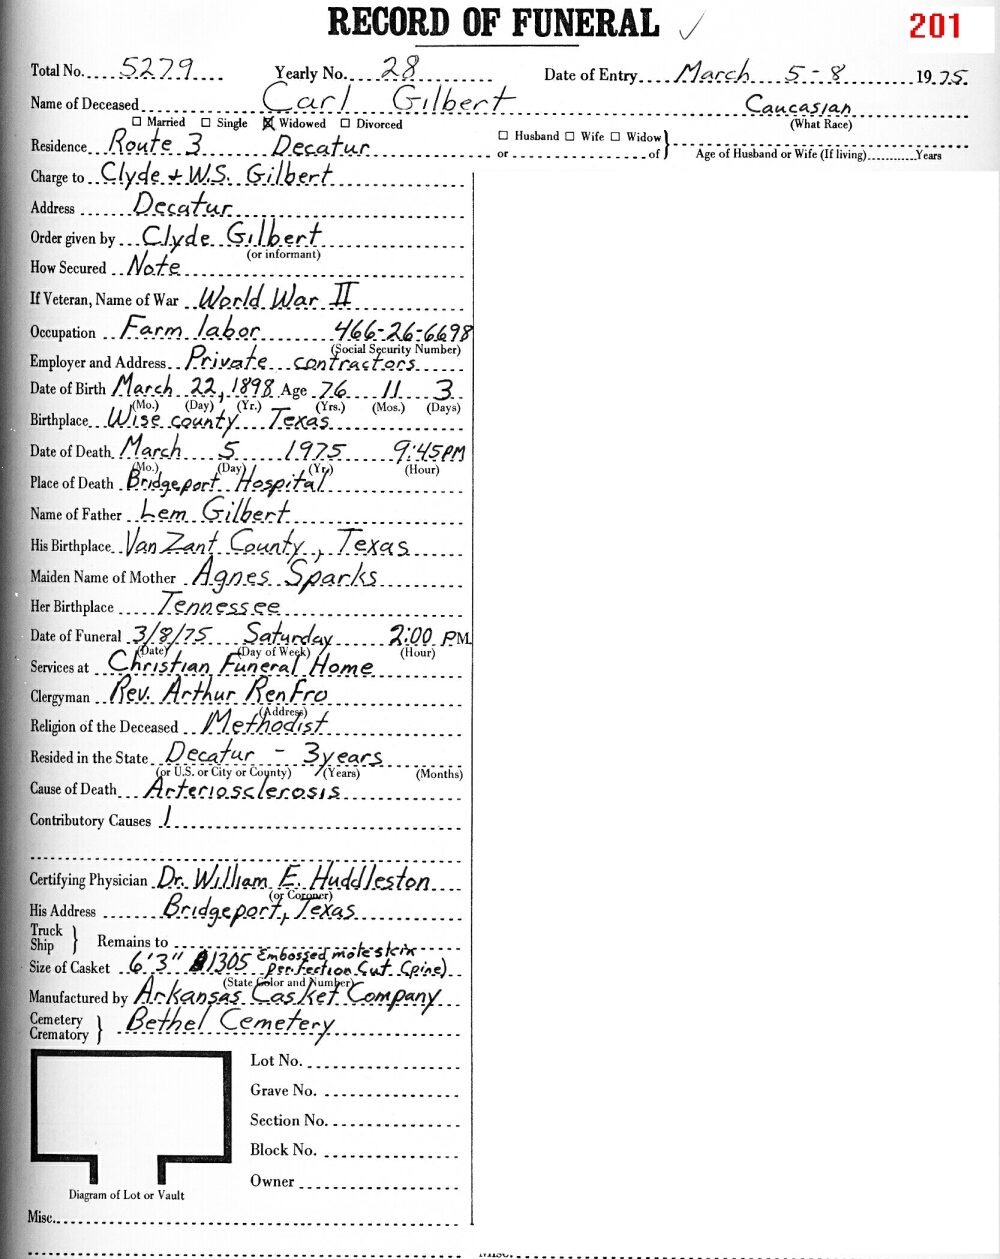 RECORD OF FUNERAL ✓ 201
Total No. 5279 Yearly No. 28 Date of Entry March 5-8 1975.
Name of Deceased Carl Gilbert Caucasian
☐ Married ☐ Single ☒ Widowed ☐ Divorced (What Race)
Residence Route 3 Decatur ☐ Husband ☐ Wife ☐ Widow
or of Age of Husband or Wife (If living) Years
Charge to Clyde + W.S. Gilbert
Address Decatur
Order given by Clyde Gilbert
(or informant)
How Secured Note
If Veteran, Name of War World War II
Occupation Farm labor 466-26-6698
(Social Security Number)
Employer and Address Private contractors
Date of Birth March 22, 1898 Age 76 11 3
(Mo.) (Day) (Yr.) (Yrs.) (Mos.) (Days)
Birthplace Wise county Texas
Date of Death March 5 1975 9:45PM
(Mo.) (Day) (Yr) (Hour)
Place of Death Bridgeport Hospital
Name of Father Lem Gilbert
His Birthplace Van Zant County, Texas
Maiden Name of Mother Agnes Sparks
Her Birthplace Tennessee
Date of Funeral 3/8/75 Saturday 2:00 PM
(Date) (Day of Week) (Hour)
Services at Christian Funeral Home
Clergyman Rev. Arthur Renfro
(Address)
Religion of the Deceased Methodist
Resided in the State Decatur - 3 years
(or U.S. or City or County) (Years) (Months)
Cause of Death Arteriosclerosis
Contributory Causes 1
Certifying Physician Dr. William E. Huddleston
(or Coroner)
His Address Bridgeport, Texas
Truck
Ship } Remains to
Size of Casket 6'3" 1305 Embossed moleskin
perfection Cut (pine)
(State Color and Number)
Manufactured by Arkansas Casket Company
Cemetery
Crematory } Bethel Cemetery
Lot No.
Grave No.
Section No.
Block No.
Owner
Diagram of Lot or Vault
Misc.